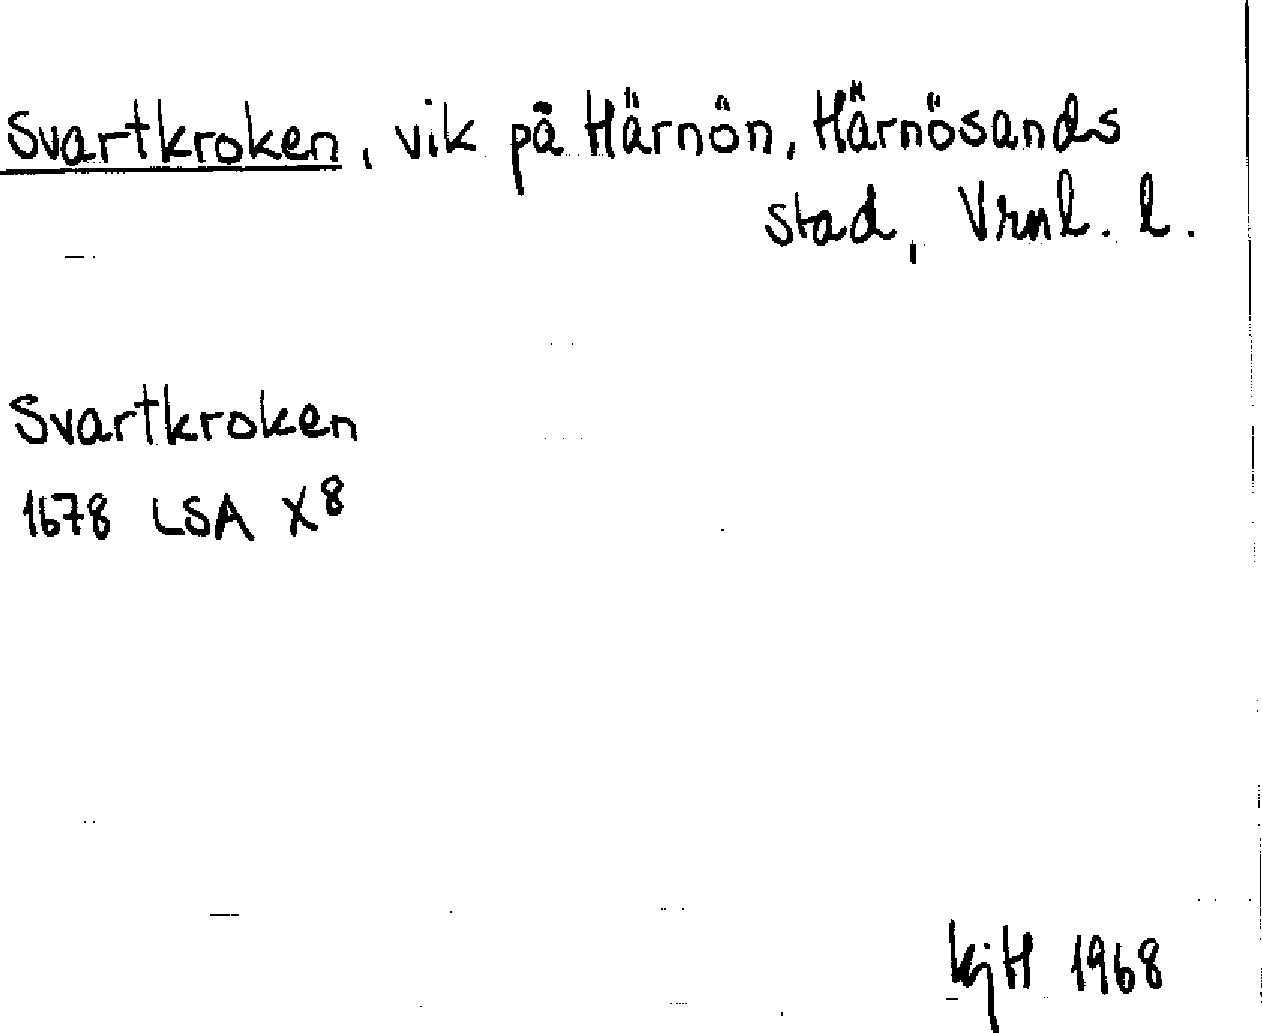 Svartkroken, vik på Härnön, Härnösands
stad, Vrnl. l.
Svartkroken
1678 LSA X8
KjH 1968